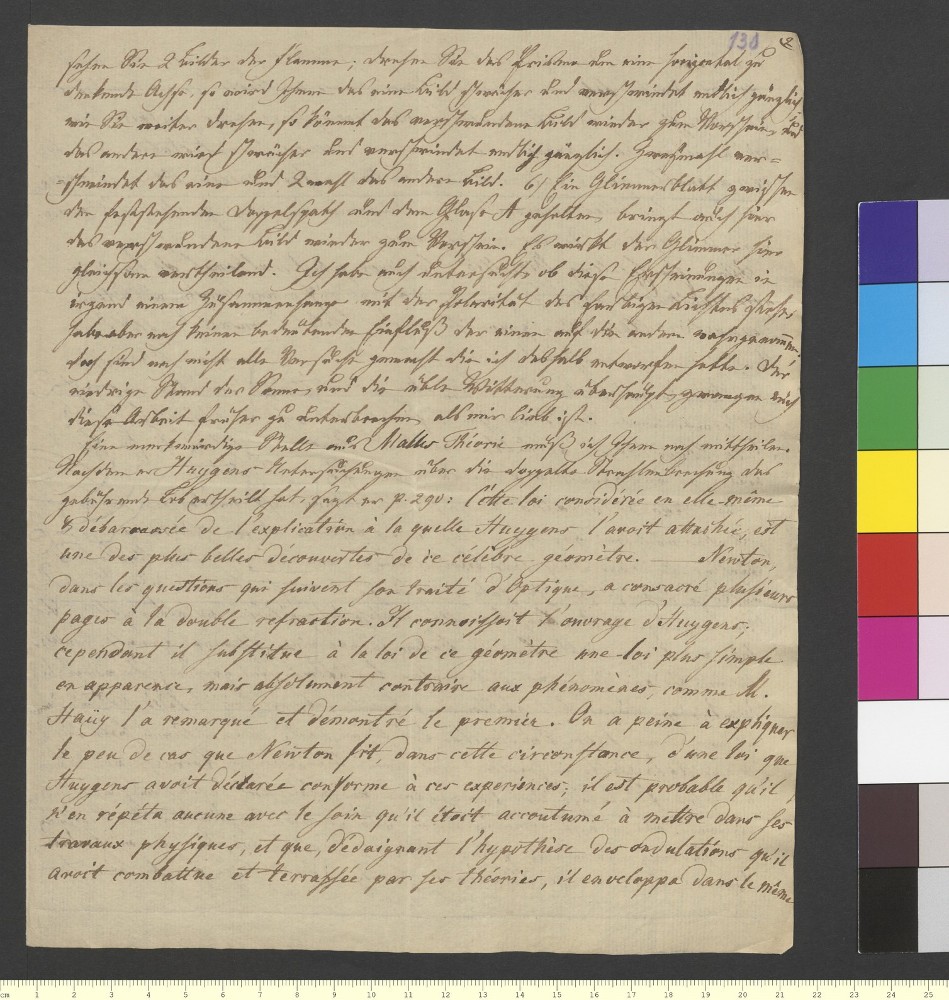 130 2
sehen Sie 2 Bilder der Flamme; drehen Sie das Prisma um eine horizontal zu
denkende Achse, so wird Ihnen das eine Bild schwächer und verschwindet endlich gänzlich
wie Sie weiter drehen, so kömmt das verschwundene Bild wieder zum Vorschein, und
das andere wird schwächer und verschwindet endlich gänzlich. Zweymahl ver=
=schwindet das eine und 2 mahl das andere Bild. 6) Ein Glimmerblatt zwischen
den feststehenden Doppelspath und dem Glase A gehalten bringt auch hier
das verschwundene Bild wieder zum Vorschein. Es wirkt der Glimmer hier
gleichsam vertheilend. Ich habe auch untersucht ob diese Erscheinungen in
irgend einem Zusammenhange mit der Polarität des farbigen Lichtes stehe,
habe aber noch keinen bedeutenden Einfluß der einen auf die andern wahrgenommen
doch sind noch nicht alle Versuche gemacht die ich deshalb entworfen hatte. Der
niedrige Stand der Sonne, und die üble Witterung überhaupt, zwangen mich
diese Arbeit früher zu unterbrechen als mir lieb ist.
Eine merkwürdige Stelle aus Malus Théorie muß ich Ihnen noch mittheilen.
Nachdem er Huygens Untersuchungen über die doppelte Strahlenbrechung das
gebührende Lob ertheilt hat, sagt er p. 290: Cette loi considérée en elle-même
& débarrassée de l'explication à la quelle Huygens l'avoit attachée, est
une des plus belles découvertes de ce célèbre géomètre. — Newton,
dans les questions qui suivent son traité d'Optique, a consacré plusieurs
pages à la double refraction. Il connoissoit l'ouvrage d'Huygens;
cependant il substitue à la loi de ce géomètre une loi plus simple
en apparence, mais absolument contraire aux phénomènes, comme M.
Haüy l'a remarqué et démontré le premier. On a peine à expliquer
le peu de cas que Newton fit, dans cette circonstance, d'une loi que
Huygens avoit déclarée conforme à ces experiences; il est probable qu'il
n'en répéta aucune avec le soin qu'il étoit accoutumé à mettre dans ses
travaux physiques, et que, dédaignant l'hypothèse des ondulations qu'il
avoit combattue et terrassée par ses théories, il enveloppa dans le même